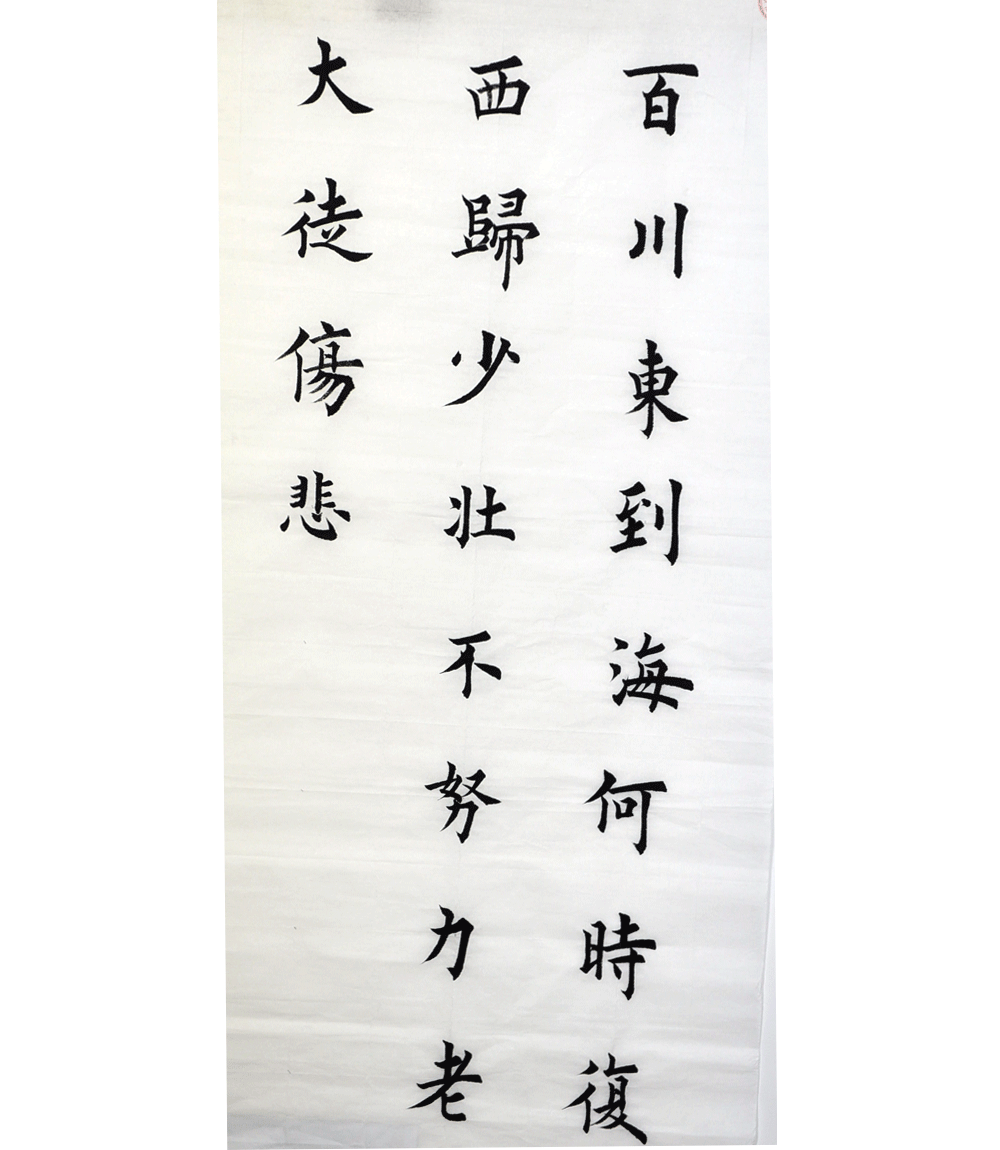 百川東到海何時復
西歸少壯不努力老
大徒傷悲